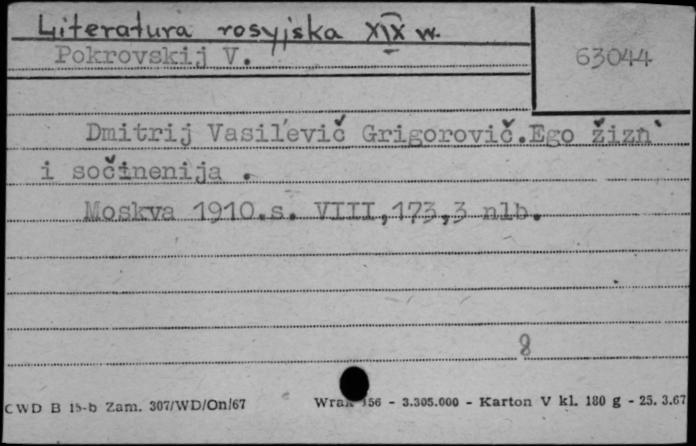 Literatura rosyjska XIX w.
Pokrovskij V.
63044
Dmitrij Vasil'evič Grigorovič. Ego žizn'
i sočinenija .
Moskva 1910.s. VIII,173,3 nlb.
8
CWD B 15-b Zam. 307/WD/On/67 56 - 3.305.000 - Karton V kl. 180 g - 25. 3.67